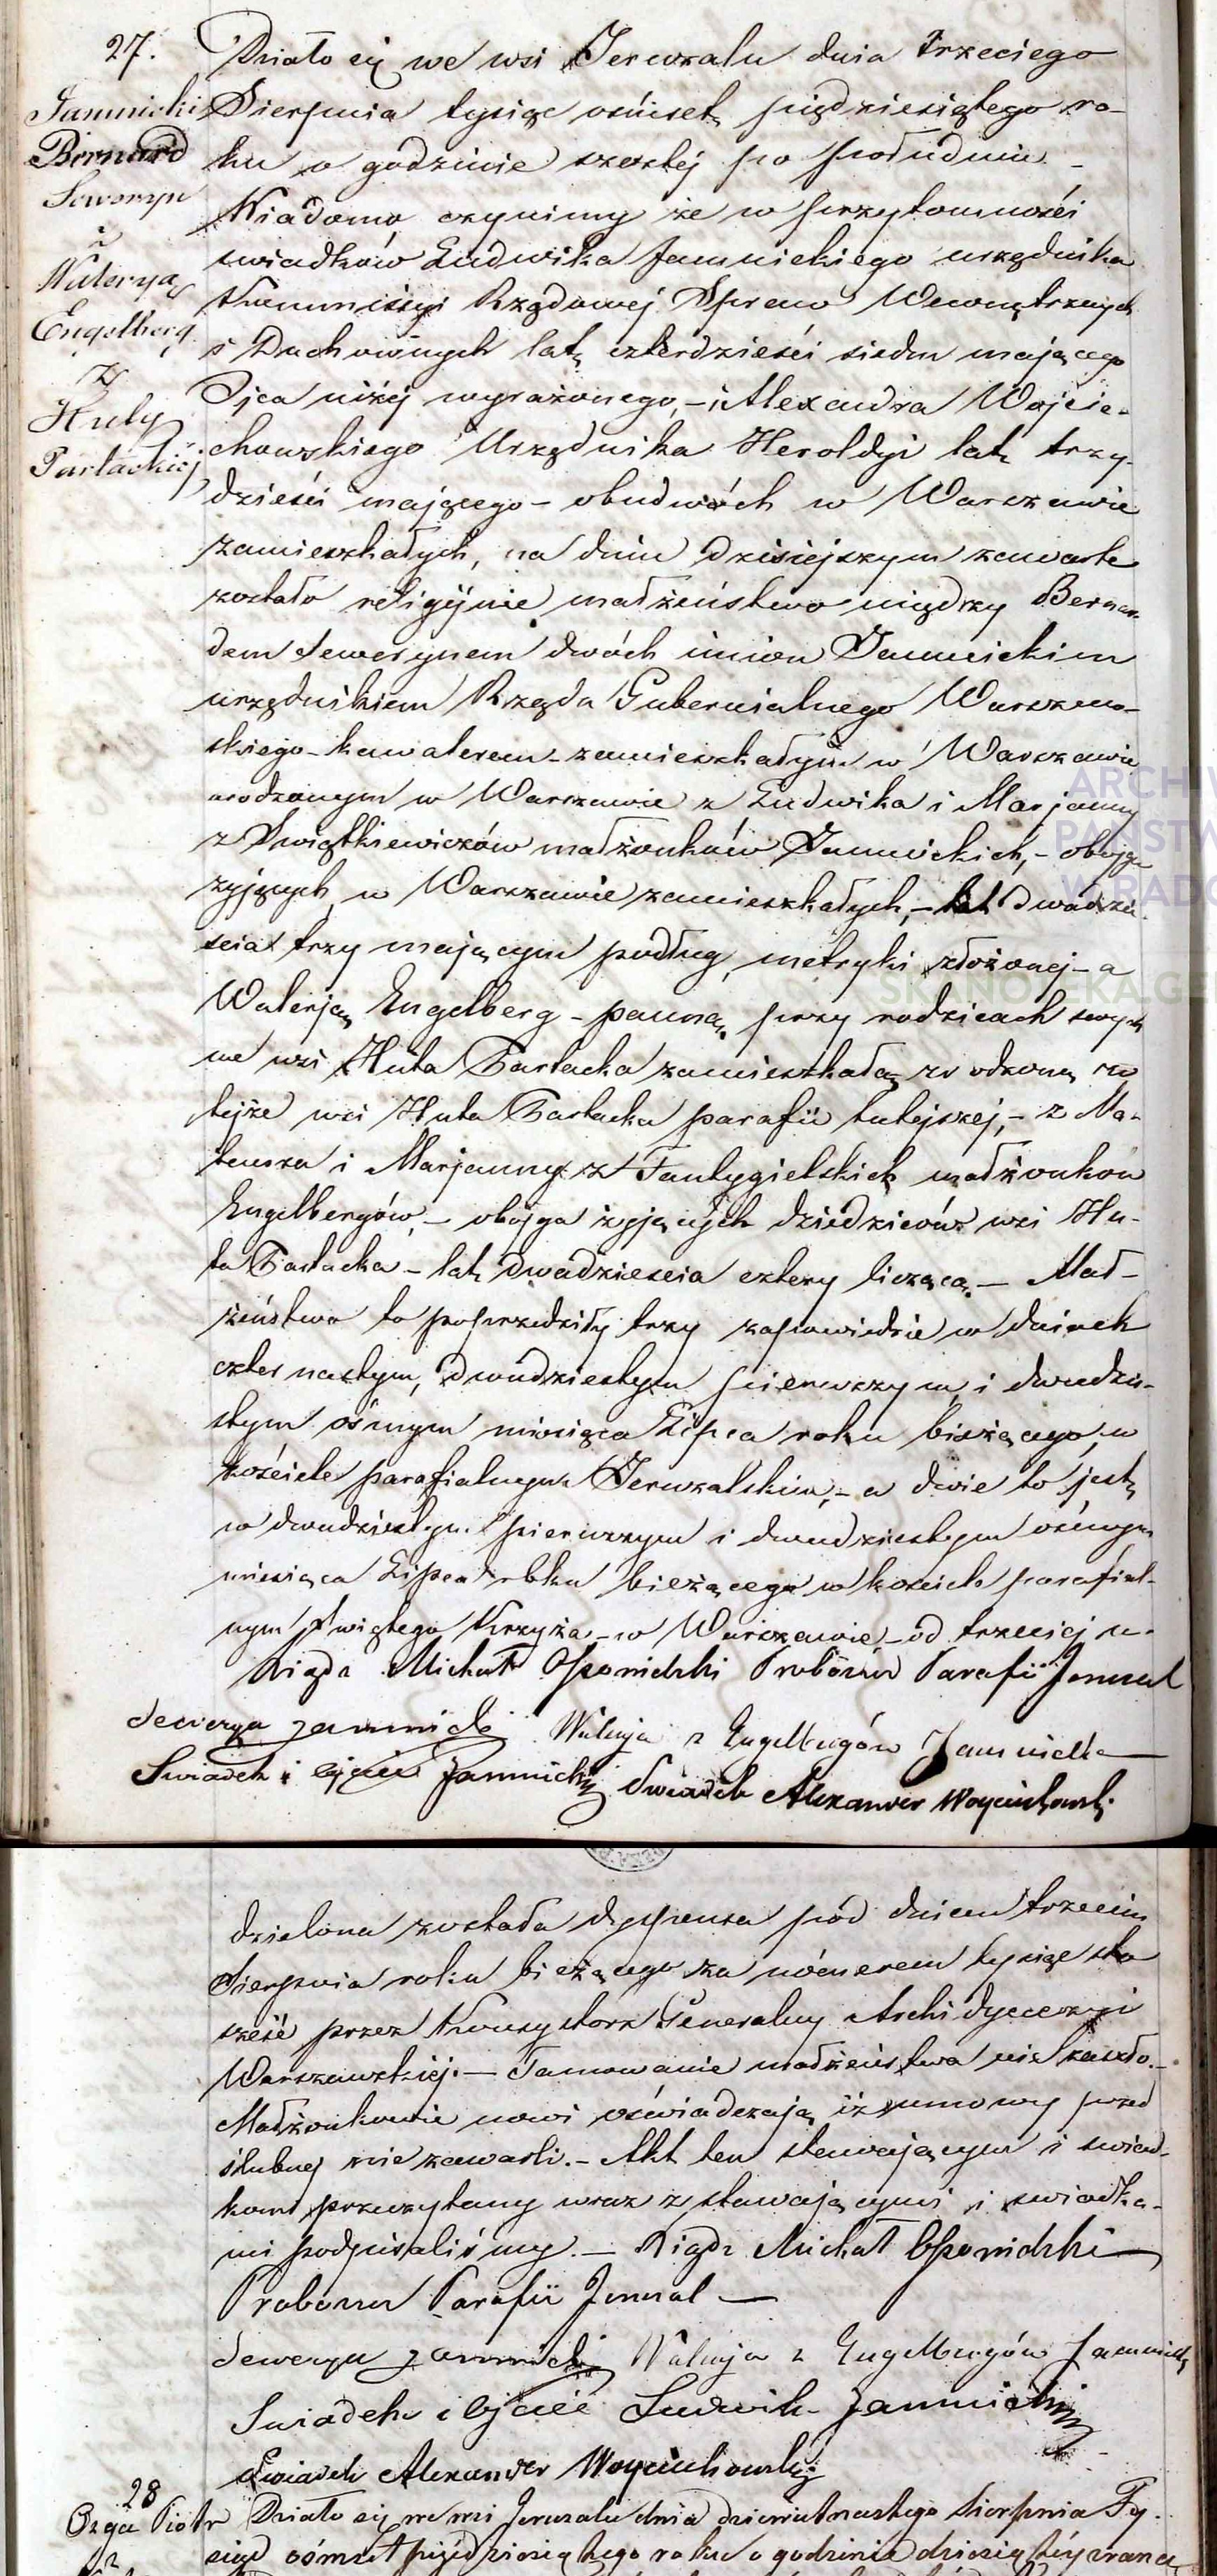 27.
Jamnicki
Bernard
Seweryn
z
Waleryą
Engelberg
z
Huty
Parlackiej
Działo się we wsi Jeruzalu dnia trzeciego
Sierpnia tysiąc ośmset pięździesiątego ro-
ku o godzinie szostej po południu. -
Wiadomo czynimy że w przytomności
swiadków Ludwika Jamnickiego urzędnika
Kommissyi Rządowej Spraw Wewnętrznych
i Duchownych lat czterdzieści siedm mającego
Ojca niżej wyrażonego, - i Alexandra Wojcie-
chowskiego Urzędnika Heroldyi lat trzy-
dzieści mającego - obudwóch w Warszawie
zamieszkałych, na dniu dzisiejszym zawarte
zostało religijnie małżeństwo między Bernar-
dem Sewerynem dwóch imion Jamnickim
urzędnikiem Rządu Gubernialnego Warszaw-
skiego - kawalerem - zamieszkałym w Warszawie
urodzonym w Warszawie z Ludwika i Marjanny
z Swiątkiewiczów małżonków Jamnickich, - obojga
żyjących w Warszawie zamieszkałych, - lat dwadzie-
scia trzy mającym podług metryki złożonej - a
Walerją Engelberg - panną, przy rodzicach swych
we wsi Huta Parlacka zamieszkałą, zrodzoną w
tejże wsi Huta Parlacka parafii tutejszej, - z Ma-
teusza i Marjanny z małżonków
Engelbergów, - obojga żyjących dziedziców wsi Hu-
ta Parlacka - lat dwadzieścia cztery liczącą. - Mał-
żeństwo to poprzedziły trzy zapowiedzie w dniach
czternastym, dwudziestym pierwszym i dwudzie-
stym ósmym miesiąca Lipca roku bieżącego, w
kościele parafialnym Jeruzalskim, - a dwie to jest
w dwudziestym pierwszym i dwudziestym ósmym
miesiąca Lipca roku bieżącego w kościele parafial-
nym Swiętego Krzyża - w Warszawie - od trzeciej u-
Xiądz Michał Proboszcz Parafii Jeruzal
Seweryn Jamnicki Waleryja z Engelbergów Jamnicka
Swiadek i ojciec Jamnicki Swiadek Alexander Woyciechowski
dzielona została dyspensa pod dniem trzecim
Sierpnia roku bieżącego za nómerem tysiąc sto
sześć przez Konsystorz Generalny Archidyecezyi
Warszawskiej. - Tamowanie małżeństwa nie zaszło. -
Małżonkowie nowi oświadczają iż umowy przed
ślubnej nie zawarli. - Akt ten stawającym i swiad-
kom przeczytany wraz z stawającymi i swiadka-
mi podpisaliśmy. - Xiądz Michał
Proboszcz Parafii Jeruzal
Seweryn Jamnicki Waleryja z Engelbergów Jamnicka
Swiadek i Ojciec Ludwik Jamnicki
Swiadek Alexander Woyciechowski
28
Ozga Piotr
Działo się we wsi Jeruzalu dnia dziewiętnastego Sierpnia Ty-
siąc ośmset pięćdziesiątego roku o godzinie dziesiątéy zrana